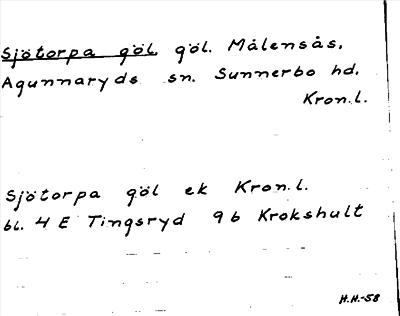 Sjötorpa göl, göl. Målensås,
Agunnaryds sn. Sunnerbo hd.
Kron.l.
Sjötorpa göl ek Kron.l.
bl. 4 E Tingsryd 9 b Krokshult
H.H.-58